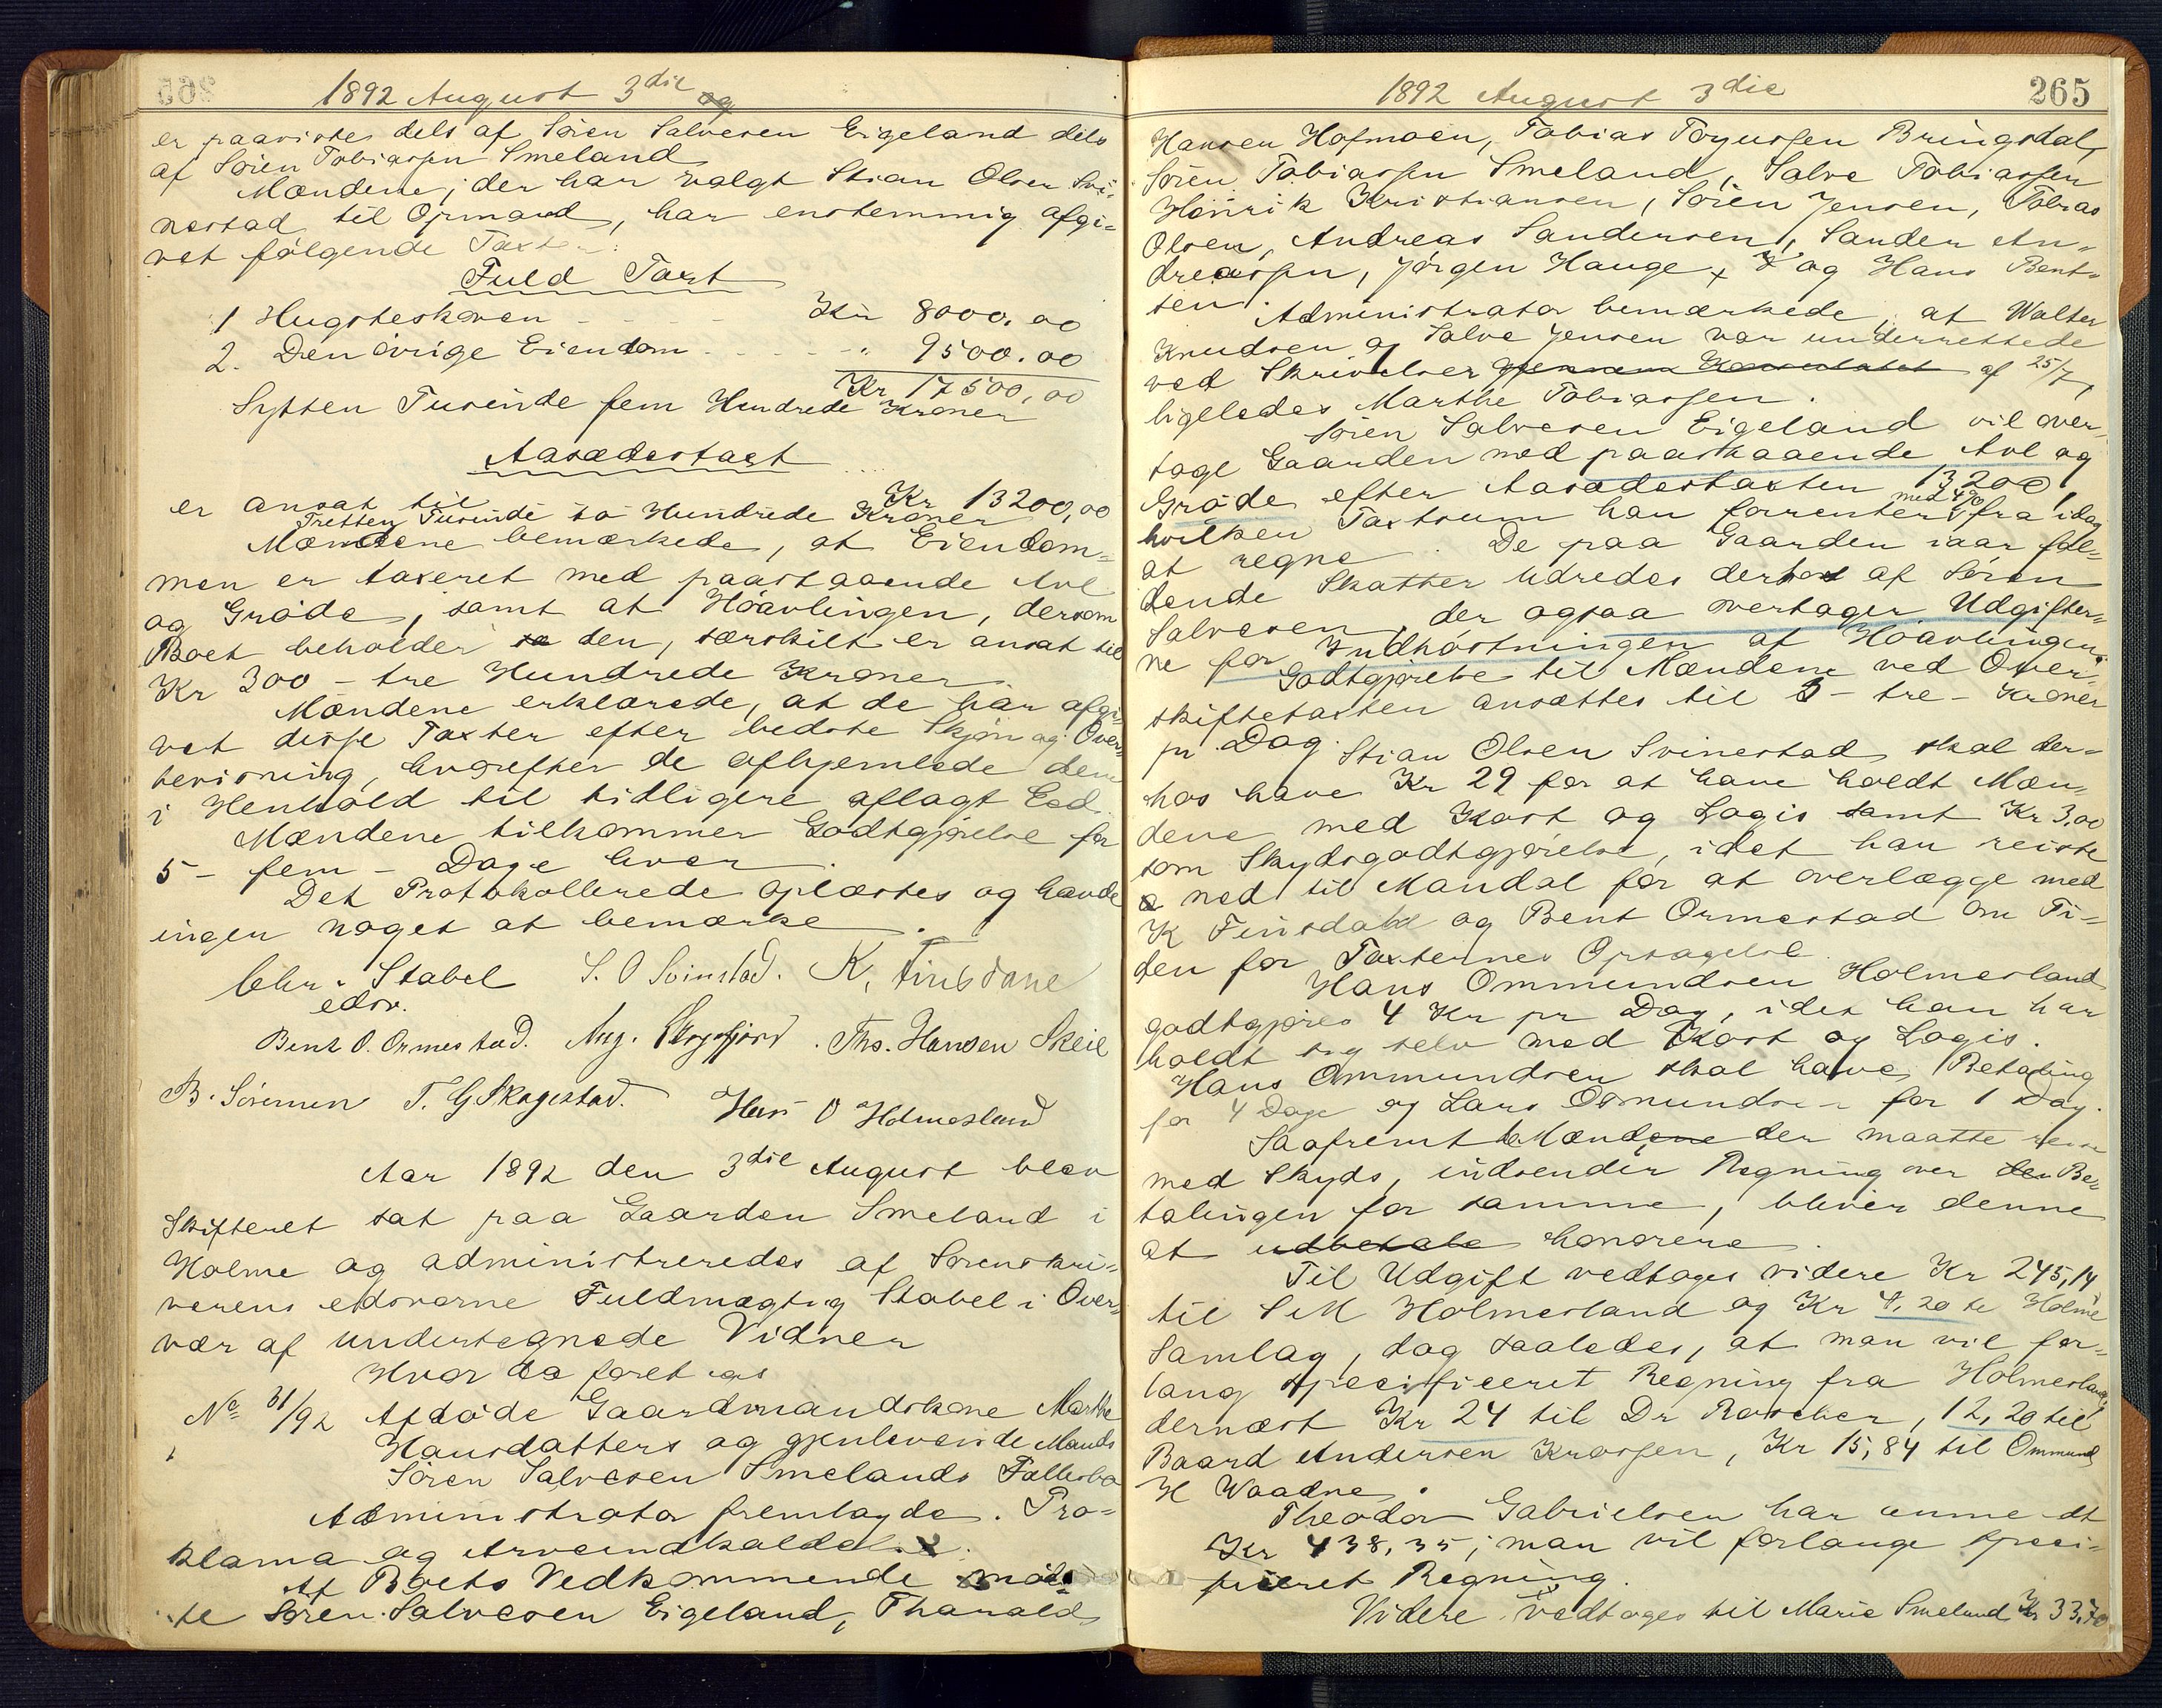 1892 August 3die
er paaviste dels af Søren Salvesen Eigeland dels
af Søren Tobiassen Smeland
Mændene, der har valgt Stian Olsen Svi=
nestad til Opmand, har enstemmig afgi=
vet følgende Taxter:
Fuld Taxt
1 Hugsteskoven - - - - Kr 8000,00
2. Den øvrige Eiendom - - - - " 9500.00
Kr 17500,00
Sytten Tusinde fem Hundrede Kroner
Aasædestaxt
er ansat til Kr 13200,00
Tretten Tusinde to Hundrede Kroner
Mændene bemærkede, at Eiendom=
men er taxeret med paastaaende Avl
og Grøde, samt at Høavlingen, dersom
Boet beholder den, særskilt er ansat til
Kr 300 - tre Hundrede Kroner.
Mændene erklærede, at de har afgi=
vet disse Taxter efter bedste Skjøn og Over=
bevisning, hvorefter de afhjemlede dem
i Henhold til tidligere aflagt Eed.
Mændene tilkommer Godtgjørelse for
5 - fem - Dage hver.
Det Protokollerede oplæstes og havde
ingen noget at bemærke.
Chr. Stabel S. O Svinstad. K. Finsdane
edsv.
Bent O. Ormestad. Aug. Ths. Hansen Skeie
B. Sørensen T. G Skagestad. Hans O Holmesland
Aar 1892 den 3die August blev
Skifteret sat paa Gaarden Smeland i
Holme og administreredes af Sorenskri=
verens edsvorne Fuldmægtig Stabel i Over=
vær af undertegnede Vidner
Hvor da foretoges
No 31/92 Afdøde Gaardmandskone Marthe
Hansdatters og gjenlevende Mands
Søren Salvesen Smelands Fællesbo
Administrator fremlagde. Pro=
klama og Arveindkaldel.
Af Boets Vedkommende mød=
te Søren Salvesen Eigeland, Tharald
1892 August 3die 265
Hansen Hofmoen, Tobias Torgussen Bringsdal,
Søren Tobiassen Smeland, Salve Tobiassen
Henrik Kristiansen, Søren Jensen, Tobias
Olsen, Andreas Sandersen, Sander An=
dreassen, Jørgen Hauge, og Hans Bent=
sen.
Administrator bemærkede, at Walter
Knudsen og Salve Jensen var underrettede
ved Skrivelser gjennem Konsulatet af 25/7,
ligeledes Marthe Tobiassen.
Søren Salvesen Eigeland vil over=
tage Gaarden med paastaaende Avl og
Grøde efter Aasædestaxten 13200,
hvilken Taxtsum han forrenter med 4% fra idag
at regne. De paa Gaarden iaar fal=
dende Skatter udredes derhos af Søren
Salvesen, der ogsaa overtager Udgifter=
ne for Indhøstningen af Høavlingen.
Godtgjørelse til Mændene ved Over=
skiftetaxten ansættes til 3 - tre - Kroner
pr Dag. Stian Olsen Svinestad skal der=
hos have Kr 29 for at have holdt Mæn=
dene med Kost og Logis samt Kr 3,00
som Skydsgodtgjørelse, idet han reiste
ned til Mandal for at overlægge med
K Finsdal og Bent Ormestad om Ti=
den for Taxternes Optagelse.
Hans Ommundsen Holmesland
godtgjøres 4 Kr pr Dag, idet han har
holdt sig selv med Kost og Logis.
Hans Ommundsen skal have Betaling
for 4 Dage og Lars Osmundsen for 1 Dag.
Saafremt de Mændene der maatte reise
med Skyds, indsender Regning over den Be=
talingen for samme, bliver denne
at udbetale honorere.
Til Udgift vedtages videre Kr 245,14
til S M Holmesland og Kr 4,20 til Holme
Samlag, dog saaledes, at man vil for=
lang specificeret Regning fra Holmesland
dernæst Kr 24 til Dr Roscher, 12,20 til
Baard Andersen Krossen, Kr 15,84 til Ommund
H Waadne.
Theodor Gabrielsen har anmeldt
Kr 438,35; man vil forlange speci=
ficeret Regning.
Videre vedtages til Marie Smeland Kr 33.70